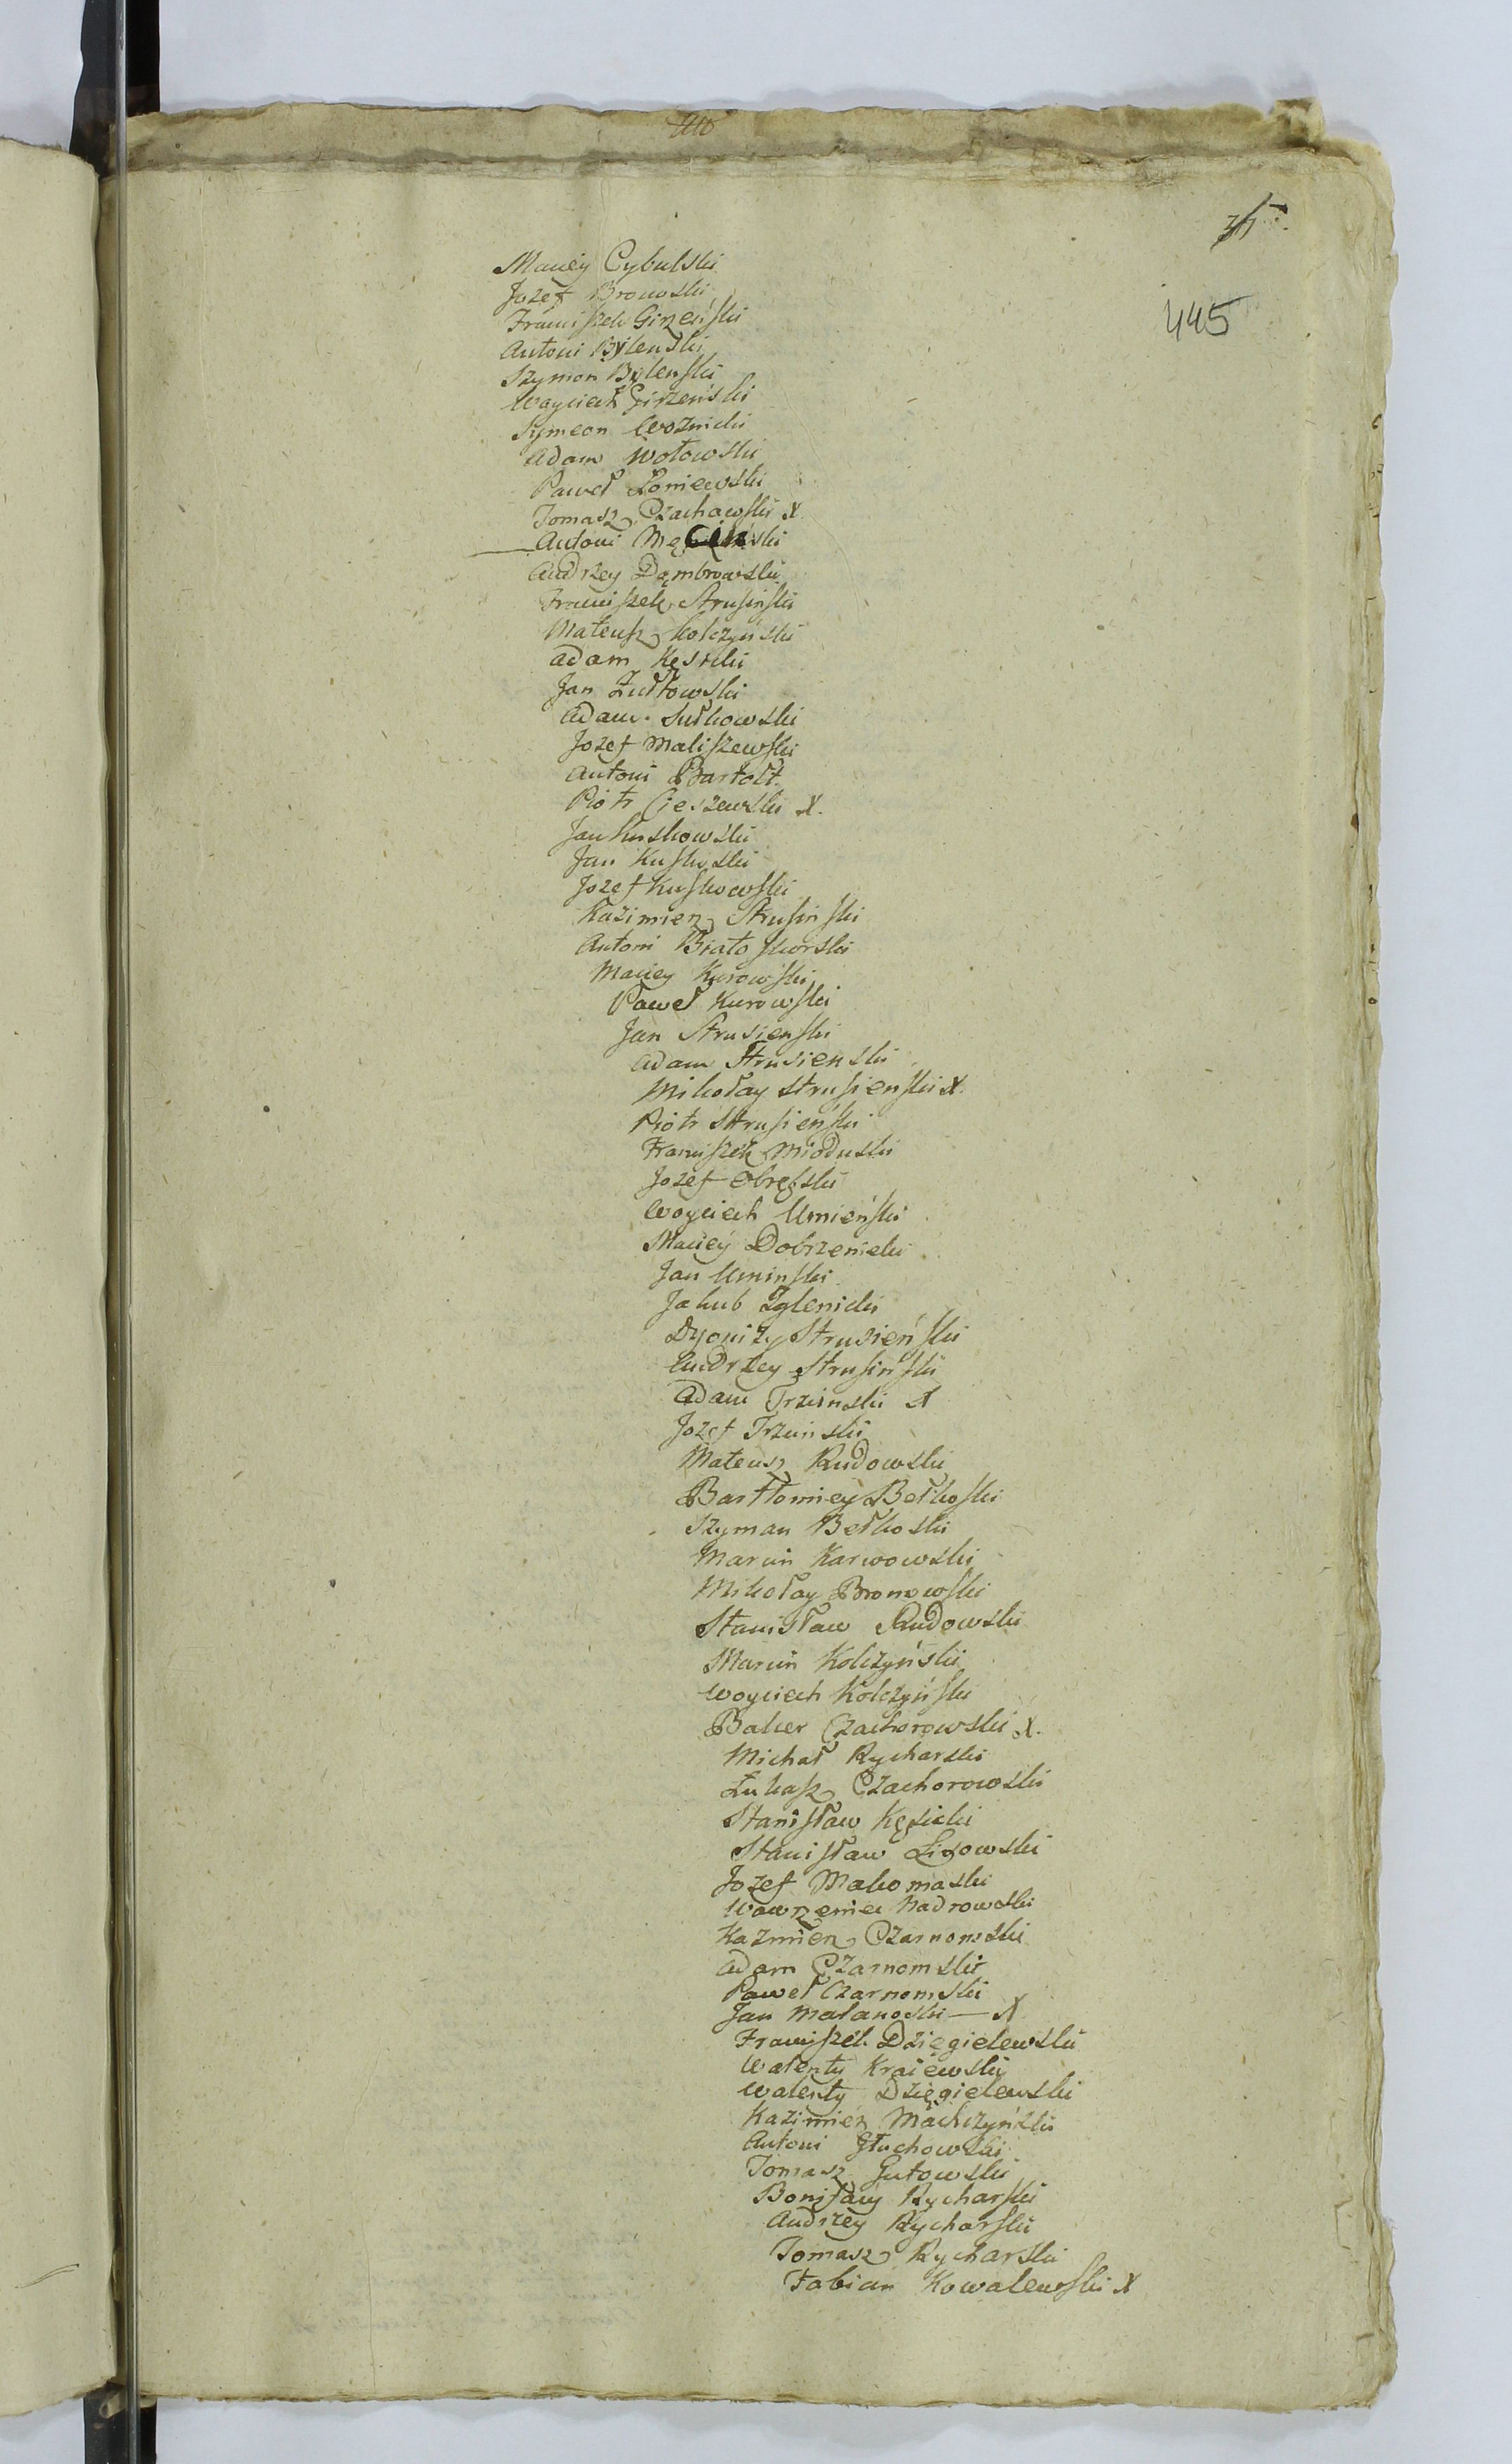 445
Maciey Cybulski
Jozef Bronoski
Franciszek Girzeński
Antoni Bylenski
Szymon Bylenski
Woyciech Girzeński
Symeon Woznicki
Adam Wołowski
Paweł Łoniewski
Tomasz Czachowski X.
Antoni Męciński
Andrzey Dąmbrowski
Franciszek Strusiński
Mateusz Kolczyński
Adam Kęsicki
Jan Żułtowski
Adam Sułkowski
Jozef Maliszewski
Antoni Bartołt.
Piotr Cieszewski X.
Jan Kuskowski
Jan Kuskoski
Jozef Kuskowski
Kazimierz Strusinski
Antoni Białoskorski
Maciey Kurowski
Paweł Kurowski
Jan Strusienski
Adam Strusienski
Mikołay Strusienski X.
Piotr Strusieński
Franciszek Mioduski
Jozef Obręski
Woyciech Umieński
Maciey Dobrzenicki
Jan Uminski
Jakub Zglenicki
Dyonizy Strusieński
Andrzey Strusinski
Adam Trzcinski X
Jozef Trzcinski
Mateusz Rudowski
Bartłomiey Bełkoski
Szyman Bełkoski
Marcin Karwowski
Mikołay Bronowski
Stanisław Rudowski
Marcin Kolczyński
Woyciech Kolczyński
Balcer Czachorowski X.
Michał Rycharski
Łukasz Czachorowski
Stanisław Kęsicki
Stanisław Lisowski
Jozef Makomaski
Wawrzeniec Nadrowski
Kazmierz Czarnomski
Adam Czarnomski
Paweł Czarnomski
Jan Małanoski — X
Franciszek Dzięgielewski
Walenty Kraiewski
Walenty Dzięgielewski
Kazimierz Machczyński
Antoni Głuchowski
Tomasz Gutowski
Bonifacy Rycharski
Andrzey Rycharski
Tomasz Rycharski
Fabian Kowalewski X